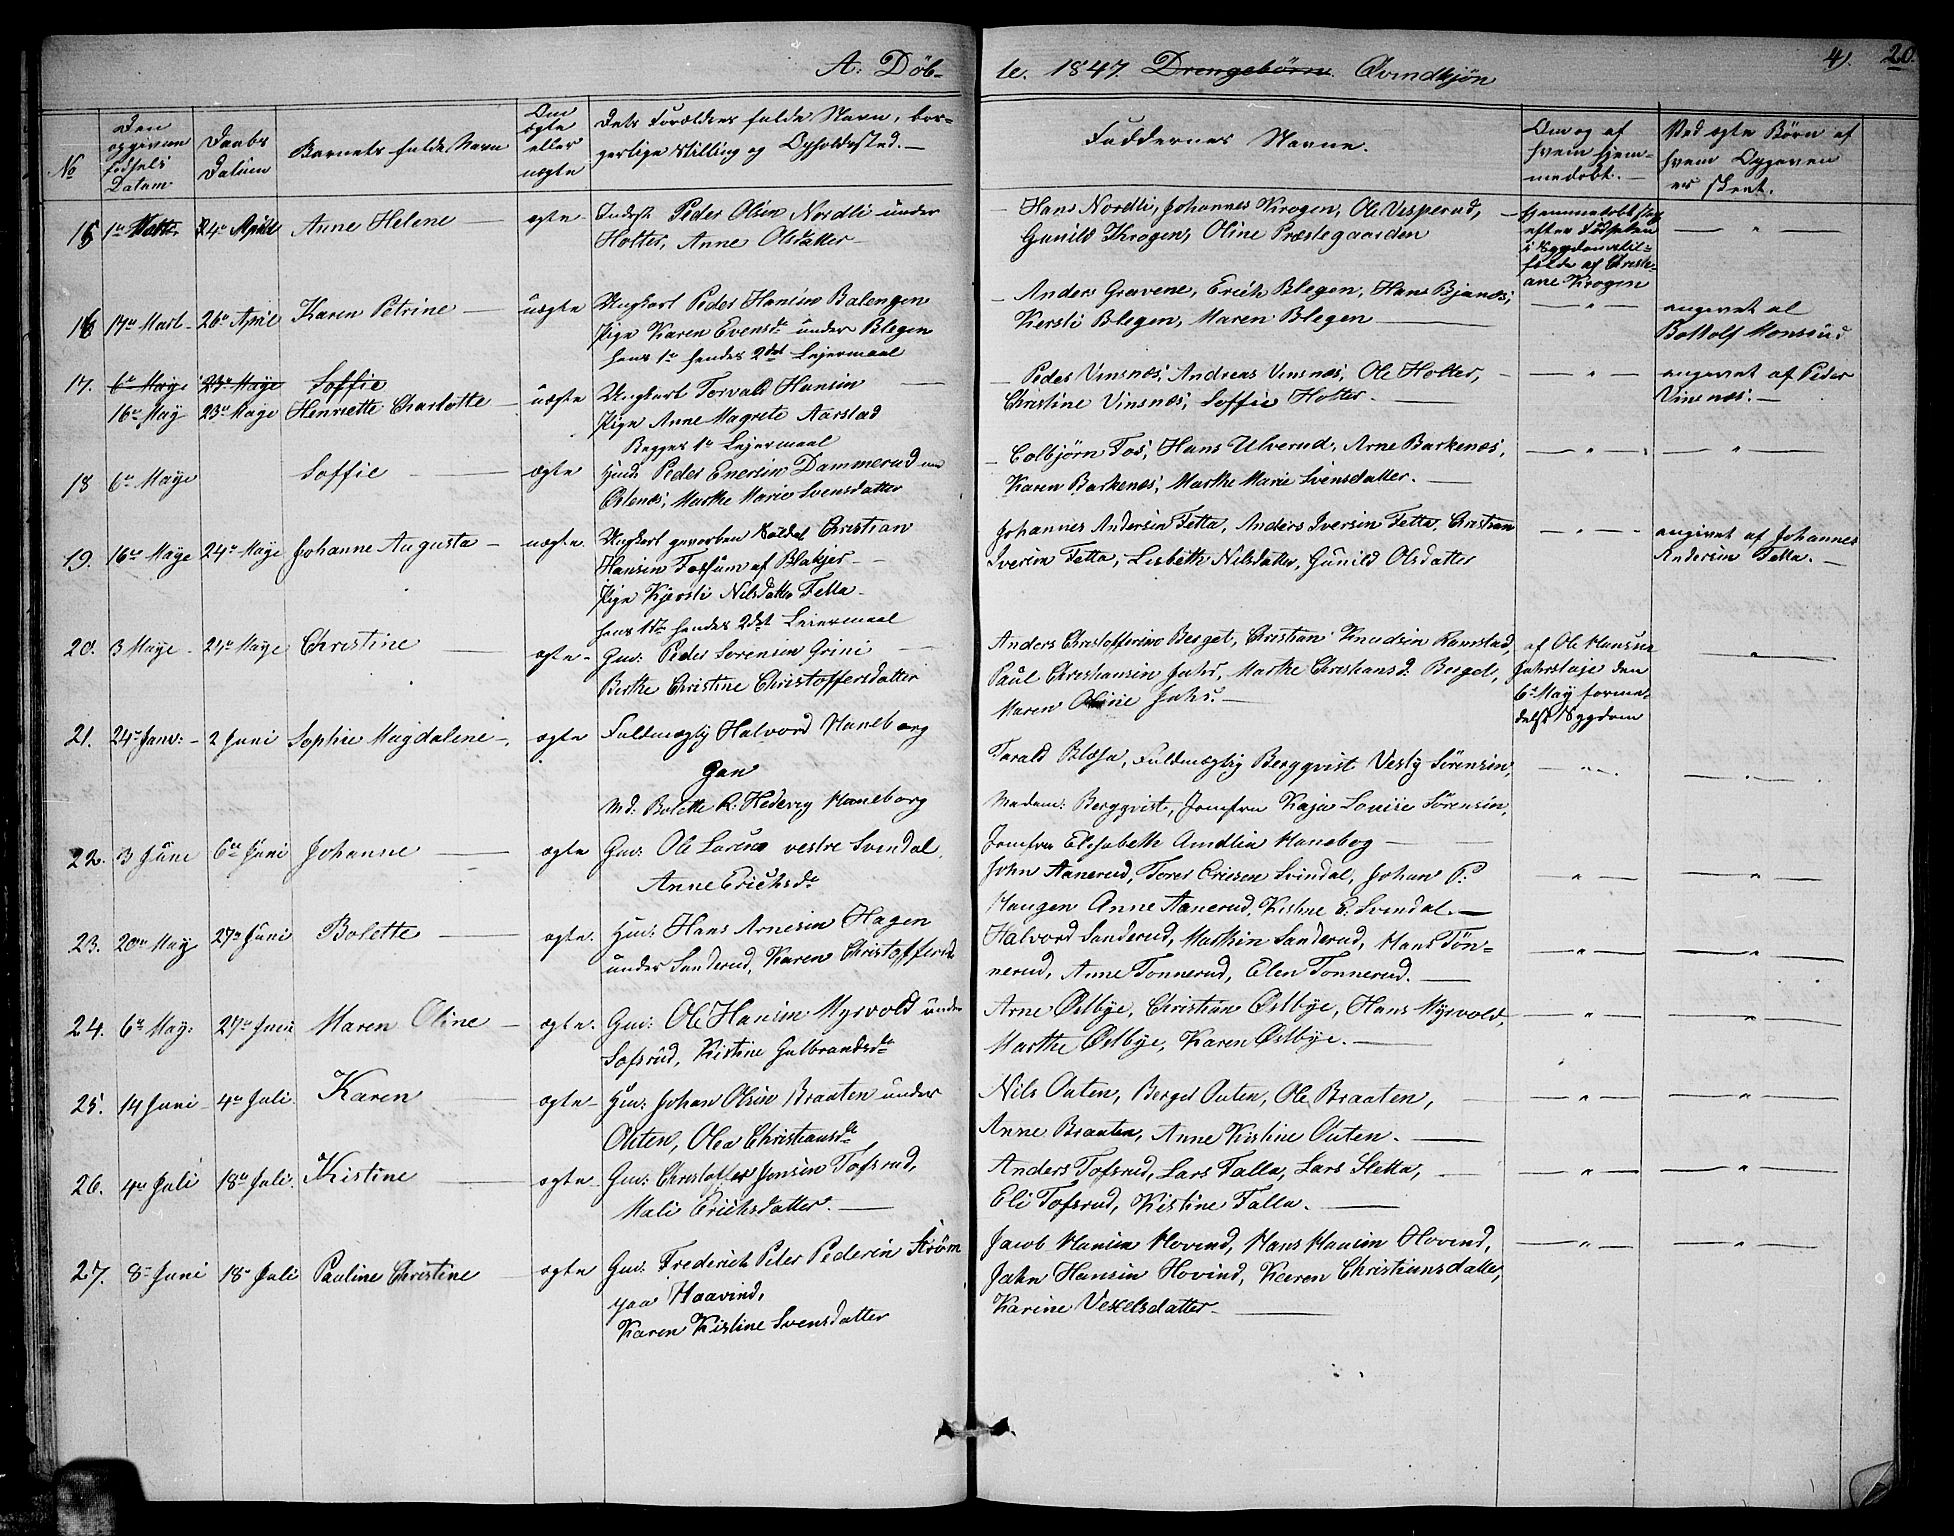 A. Döb-
te. 1847. Drengebörn. Qvindkjön
4). 20.
No
Den opgivne fødsels Datum
Daabs Datum
Barnets fulde Navn
Om ægte eller uægte
Dets Forældres fulde Navn, bor-
gerlige Stilling og Opholdssted.
Faddernes Navne.
Om og af hvem hjem-
medøbt.
Ved uægte Børn af
hvem Opgaven
er skeet.
15 24 April Anne Helene ægte Inderst Peder Olsen Nordli under
Holter, Anne Olsdatter
Hans Nordli, Johannes Krogen, Ole Visperud,
Gunild Krogen, Oline Præstegaarden
hjemmedøbt
efter Fødselen
i Sygdomstil-
fælde af Christi-
ane Krogen
16 17de Mart 26de April Karen Petrine uægte Ungkarl Peder Hansen Balengen
Pige Karen Evensdr under Blegen
hans 1ste hendes 2det Lejermaal
Anders Grevene, Erich Blegen, Hans Bjønes,
Kersti Blegen, Maren Blegen
angivet af
Bottolf Monsrud
17. 6te Maye 23de Maye Soffie
16de May 23de Maye Henriette Charlotte uægte Ungkarl Torvald Hansen
Pige Anne Magrete Aarstad
Begges 1ste Lejermaal
Peder Vinsnes, Andreas Vinsnes, Ole Holter,
Christine Vinsnes, Soffie Holter.
angivet af Peder
Vinsnes.
18 6te Maye Soffie ægte Huusm. Peder Enersen Dammerud un
Østenes, Marthe Marie Svensdatter
Colbjørn Fos, Hans Ulverud, Arne Barkenes,
Karen Barkenes, Marthe Marie Svensdatter.
19. 16de Maye 24de Maye Johanne Augusta uægte Ungkarl gevorben Soldat Christian
Hansen Fossum af Blakjer
Pige Kjersti Nilsdatter Fetta
hans 1ste hendes 2det Leiermaal
Johannes Andersen Fetta, Anders Iversen Fetta, Christian
Iversen Fetta, Lisbeth Nilsdatter, Gunild Olsdatter
angivet af Johannes
Andersen Fetta.
20. 3 Maye 24de Maye Christine ægte Gmd: Peder Sørensen Grini
Berthe Christine Christoffersdatter
Anders Christoffersen Berget, Christian Knudsen Ramstad,
Paul Christiansen Jahr, Marthe Christiansd. Berget,
Maren Oline Jahr.
af Ole Hansen
den
6te May forme-
delst Sygdom
21. 24de Janv: 2 Juni Sophie Magdalene ægte Fuldmægtig Halvord Haneborg
Gan
Md: Bolette R. Hedevig Haneborg
Tarald Blæsa, Fuldmægtig Bergqvist Vesty Sørensen,
Madam: Bergqvist, Jomfru Kaja Lovise Sørensen,
Jomfru Elisabeth Amelia Haneborg
22. 3 Juni 6te Juni Johanne ægte Gmd: Ole Larens vestre Svendal
Anne Erichsdr
John Aanerud, Tores Eriesen Svindal, Johan P.
Haugen Anne Aanerud, Kistine E. Svendal.
23. 20de May 27de Juni Bolette ægte Hmd: Hans Arnesen Hagen
under Sanderud, Karen Christoffersd
Halvord Sanderud, Marthin Sanderud, Hans Tøn-
nerud, Anne Tonnerud, Elen Tonnerud.
24. 6te May: 27de Juni Maren Oline ægte Gmd: Ole Hansen Myrvold under
Tofsrud, Kistine Gulbrandsdr
Arne Østbye, Christian Østbye, Hans Myrvold,
Marthe Østbye, Karen Østbye.
25. 14 Juni 4de Juli Karen ægte Hmd: Johan Olsen Braaten under
Outen, Olea Christiansdr
Nils Outen, Berget Outen, Ole Braaten,
Anne Braaten, Anne Kistine Outen.
26. 4de Juli 18de Juli Kistine ægte Gmd: Christoffer Jonsen Tofsrud,
Mali Erichsdatter.
Anders Tofsrud, Lars Falla, Lars Sletta,
Eli Tofsrud, Kistine Falla.
27. 8de Juni 18de Juli Pauline Christine ægte Gmd: Frederich Peter Pedersen Strøm
paa Haavind,
Karen Kistine Svensdatter
Jacob Hansen Hovind, Hans Hansen Hovind,
Jahn Hansen Hovind, Karen Christiansdatter,
Karine Vexelsdatter